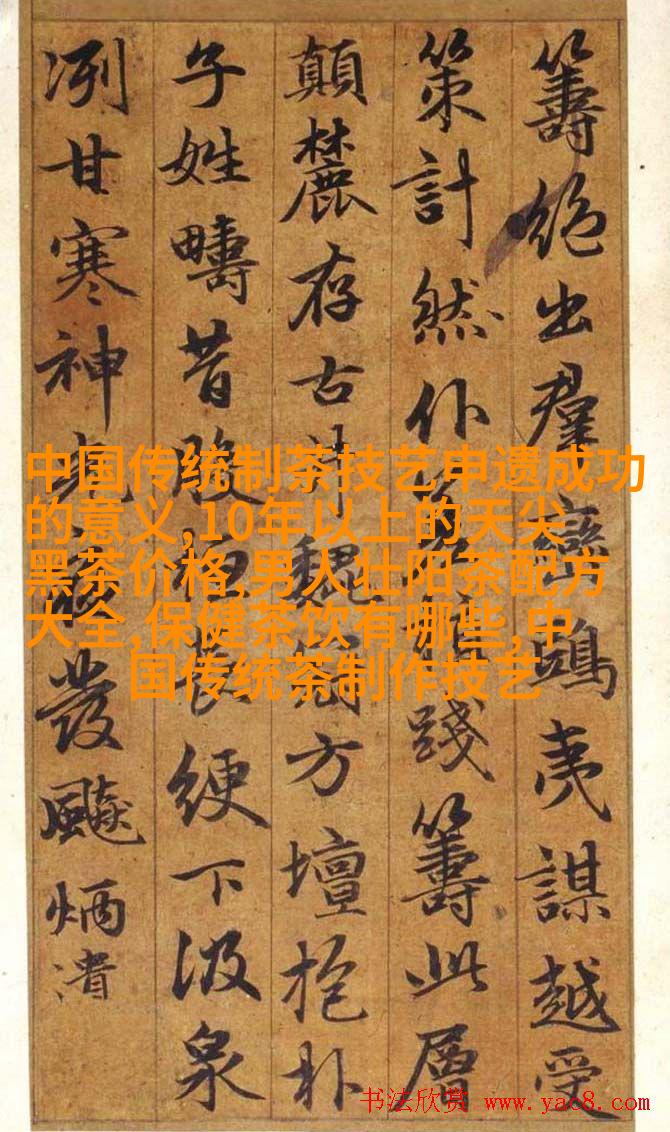 籌絕出群鴟夷謀越受
策計然仆踐籌此層
顛麓存古魏方壇抱朴
子姓疇昔服長綆下汲泉
冽甘寒神光發飈炳潰
中国传统制茶技艺申遗成功
的意义,10年以上的天尖
黑茶价格,男人壮阳茶配方
大全,保健茶饮有哪些,中
国传统茶制作技艺
书法欣赏 www.yac8.com